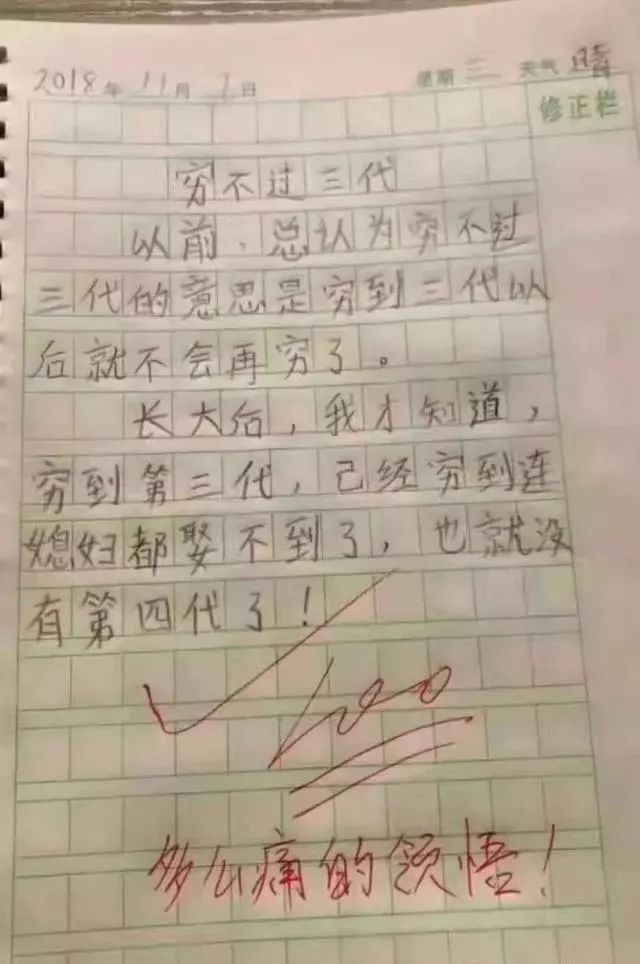 2018年11月7日 星期三 天气晴
修正栏
穷不过三代
以前,总认为穷不过
三代的意思是穷到三代以
后就不会再穷了。
长大后,我才知道,
穷到第三代,己经穷到连
媳妇都娶不到了,也就没
有第四代了!
100
多么痛的领悟!